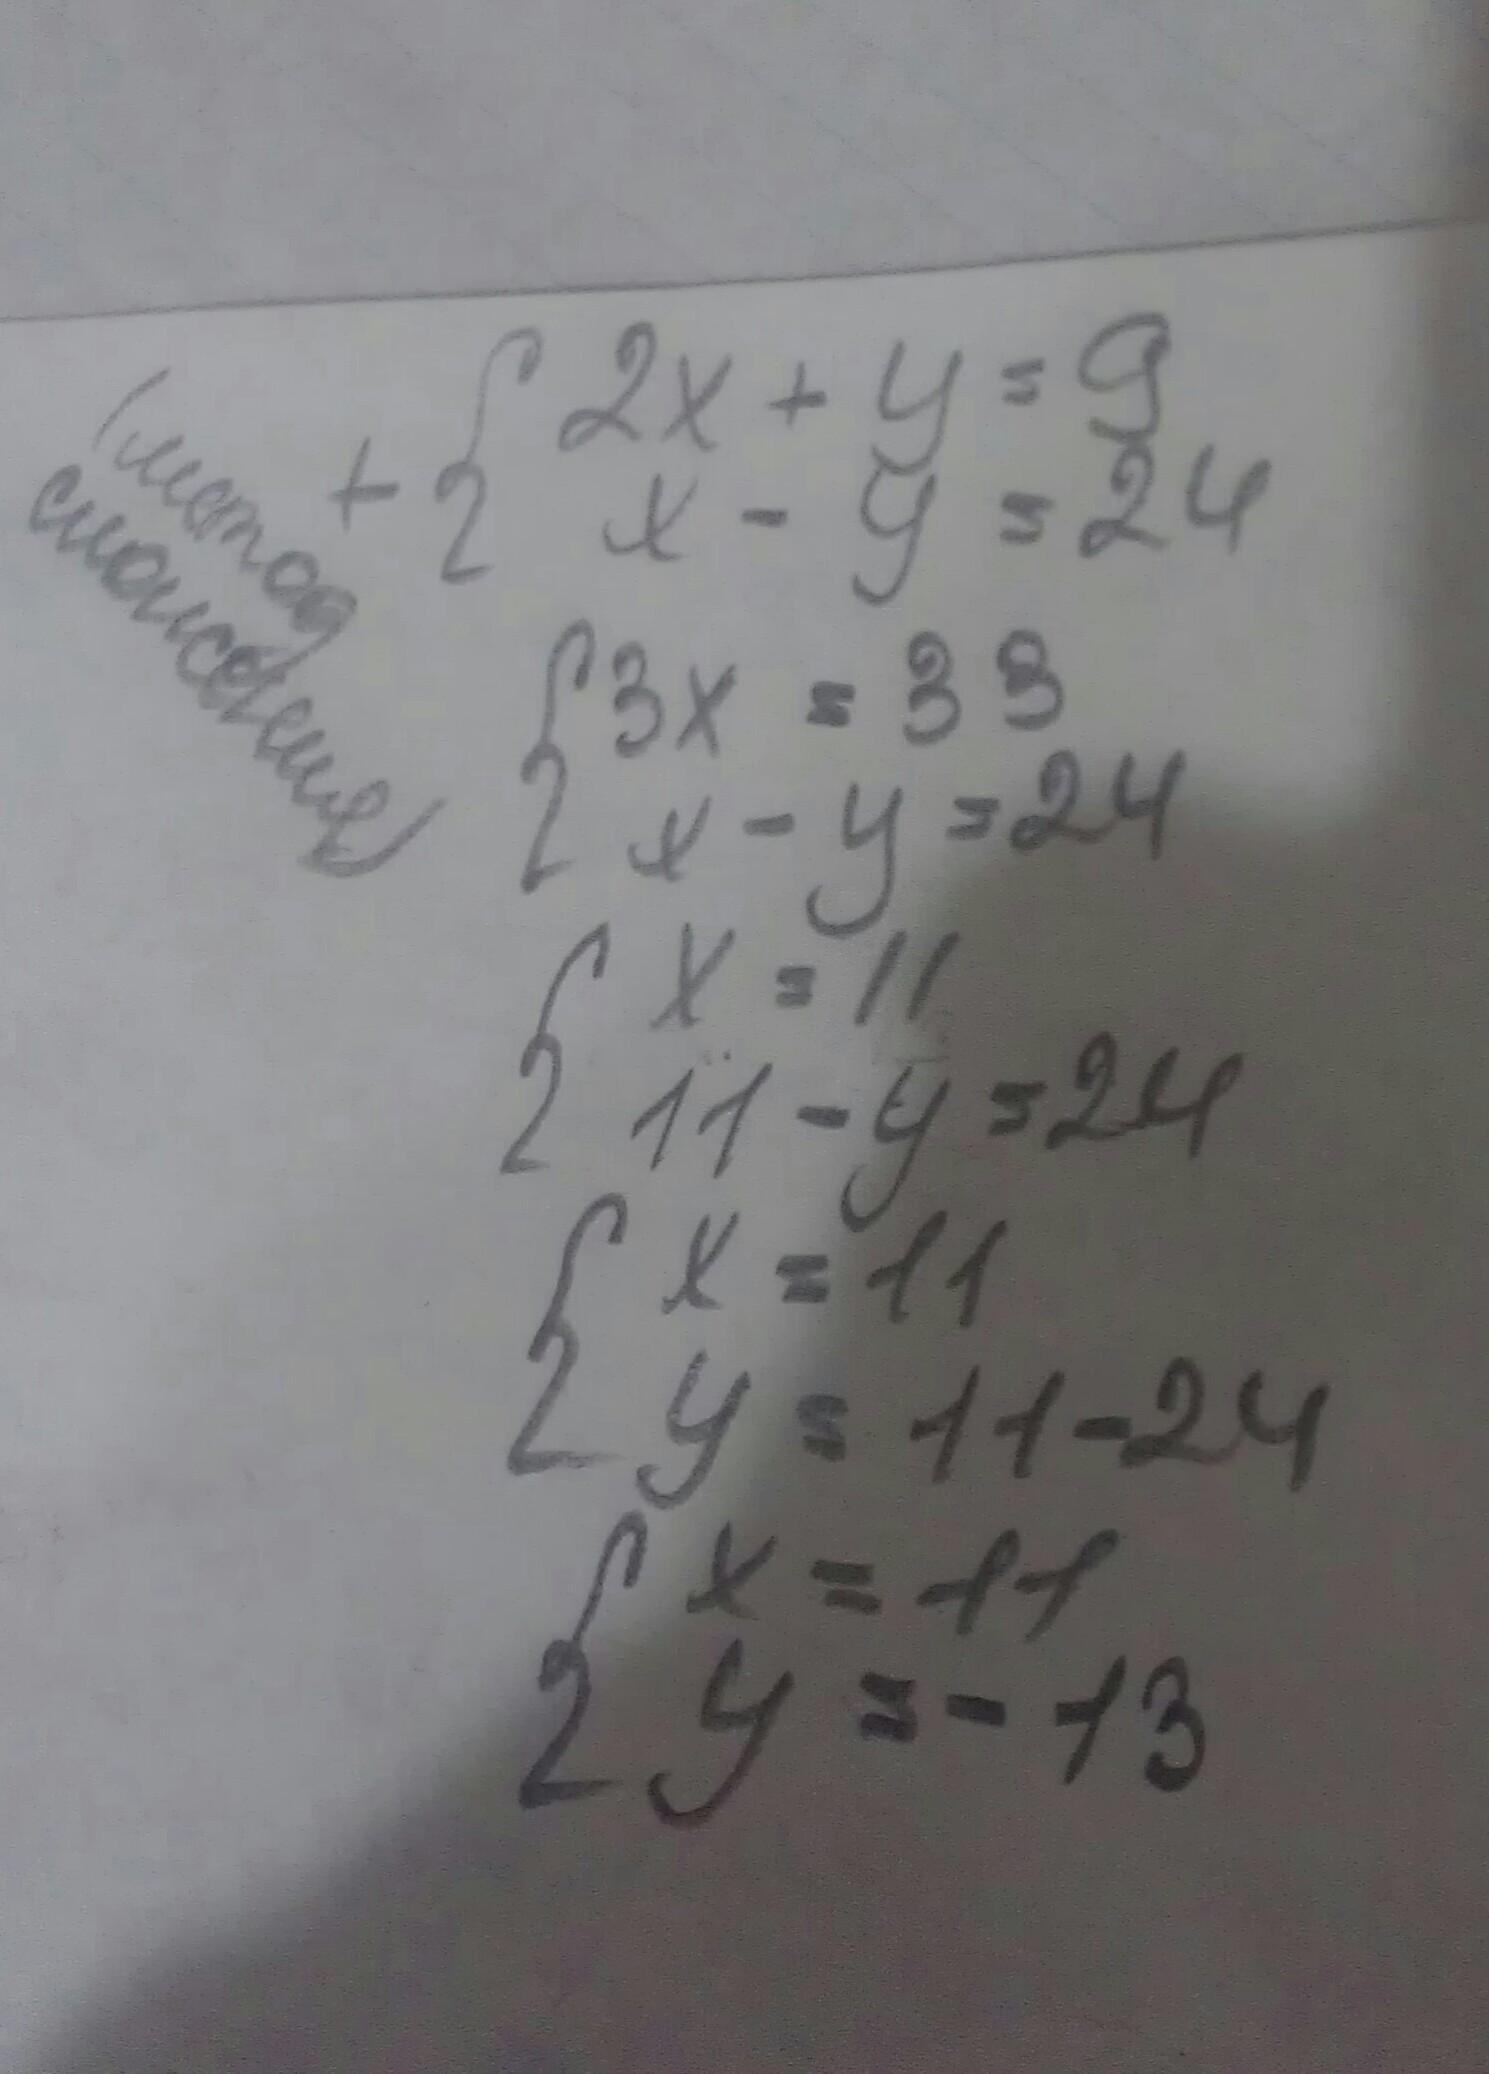 (метод
сложение)
+ { 2x + y = 9
x - y = 24
{ 3x = 33
x - y = 24
{ x = 11
11 - y = 24
{ x = 11
y = 11 - 24
{ x = 11
y = - 13